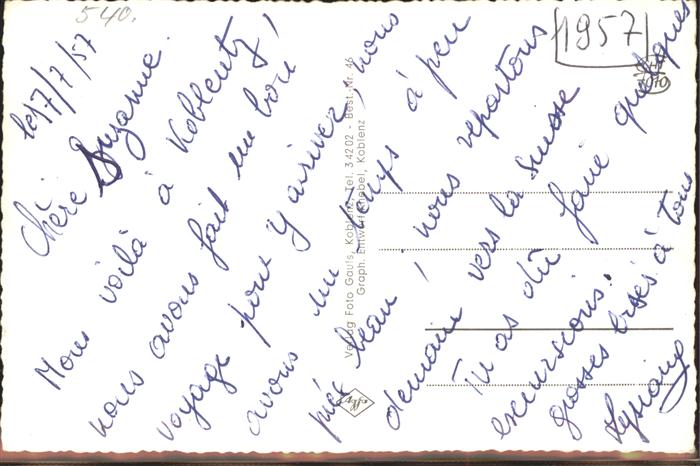 540.
1957
le 17/7/57
Chère Suzanne.
Nous voilà à Koblentz,
nous avons fait un bon
voyage pour y arriver, nous
avons un temps à peu
près beau, nous repartons
demain vers la Suisse
Tu as dû faire quelques
excursions.
grosses bises à tous
Verlag Foto Gauls, Koblenz, Tel. 34202 - Best. Nr. 46
Graph. Entwurf Gobel, Koblenz
Agfa